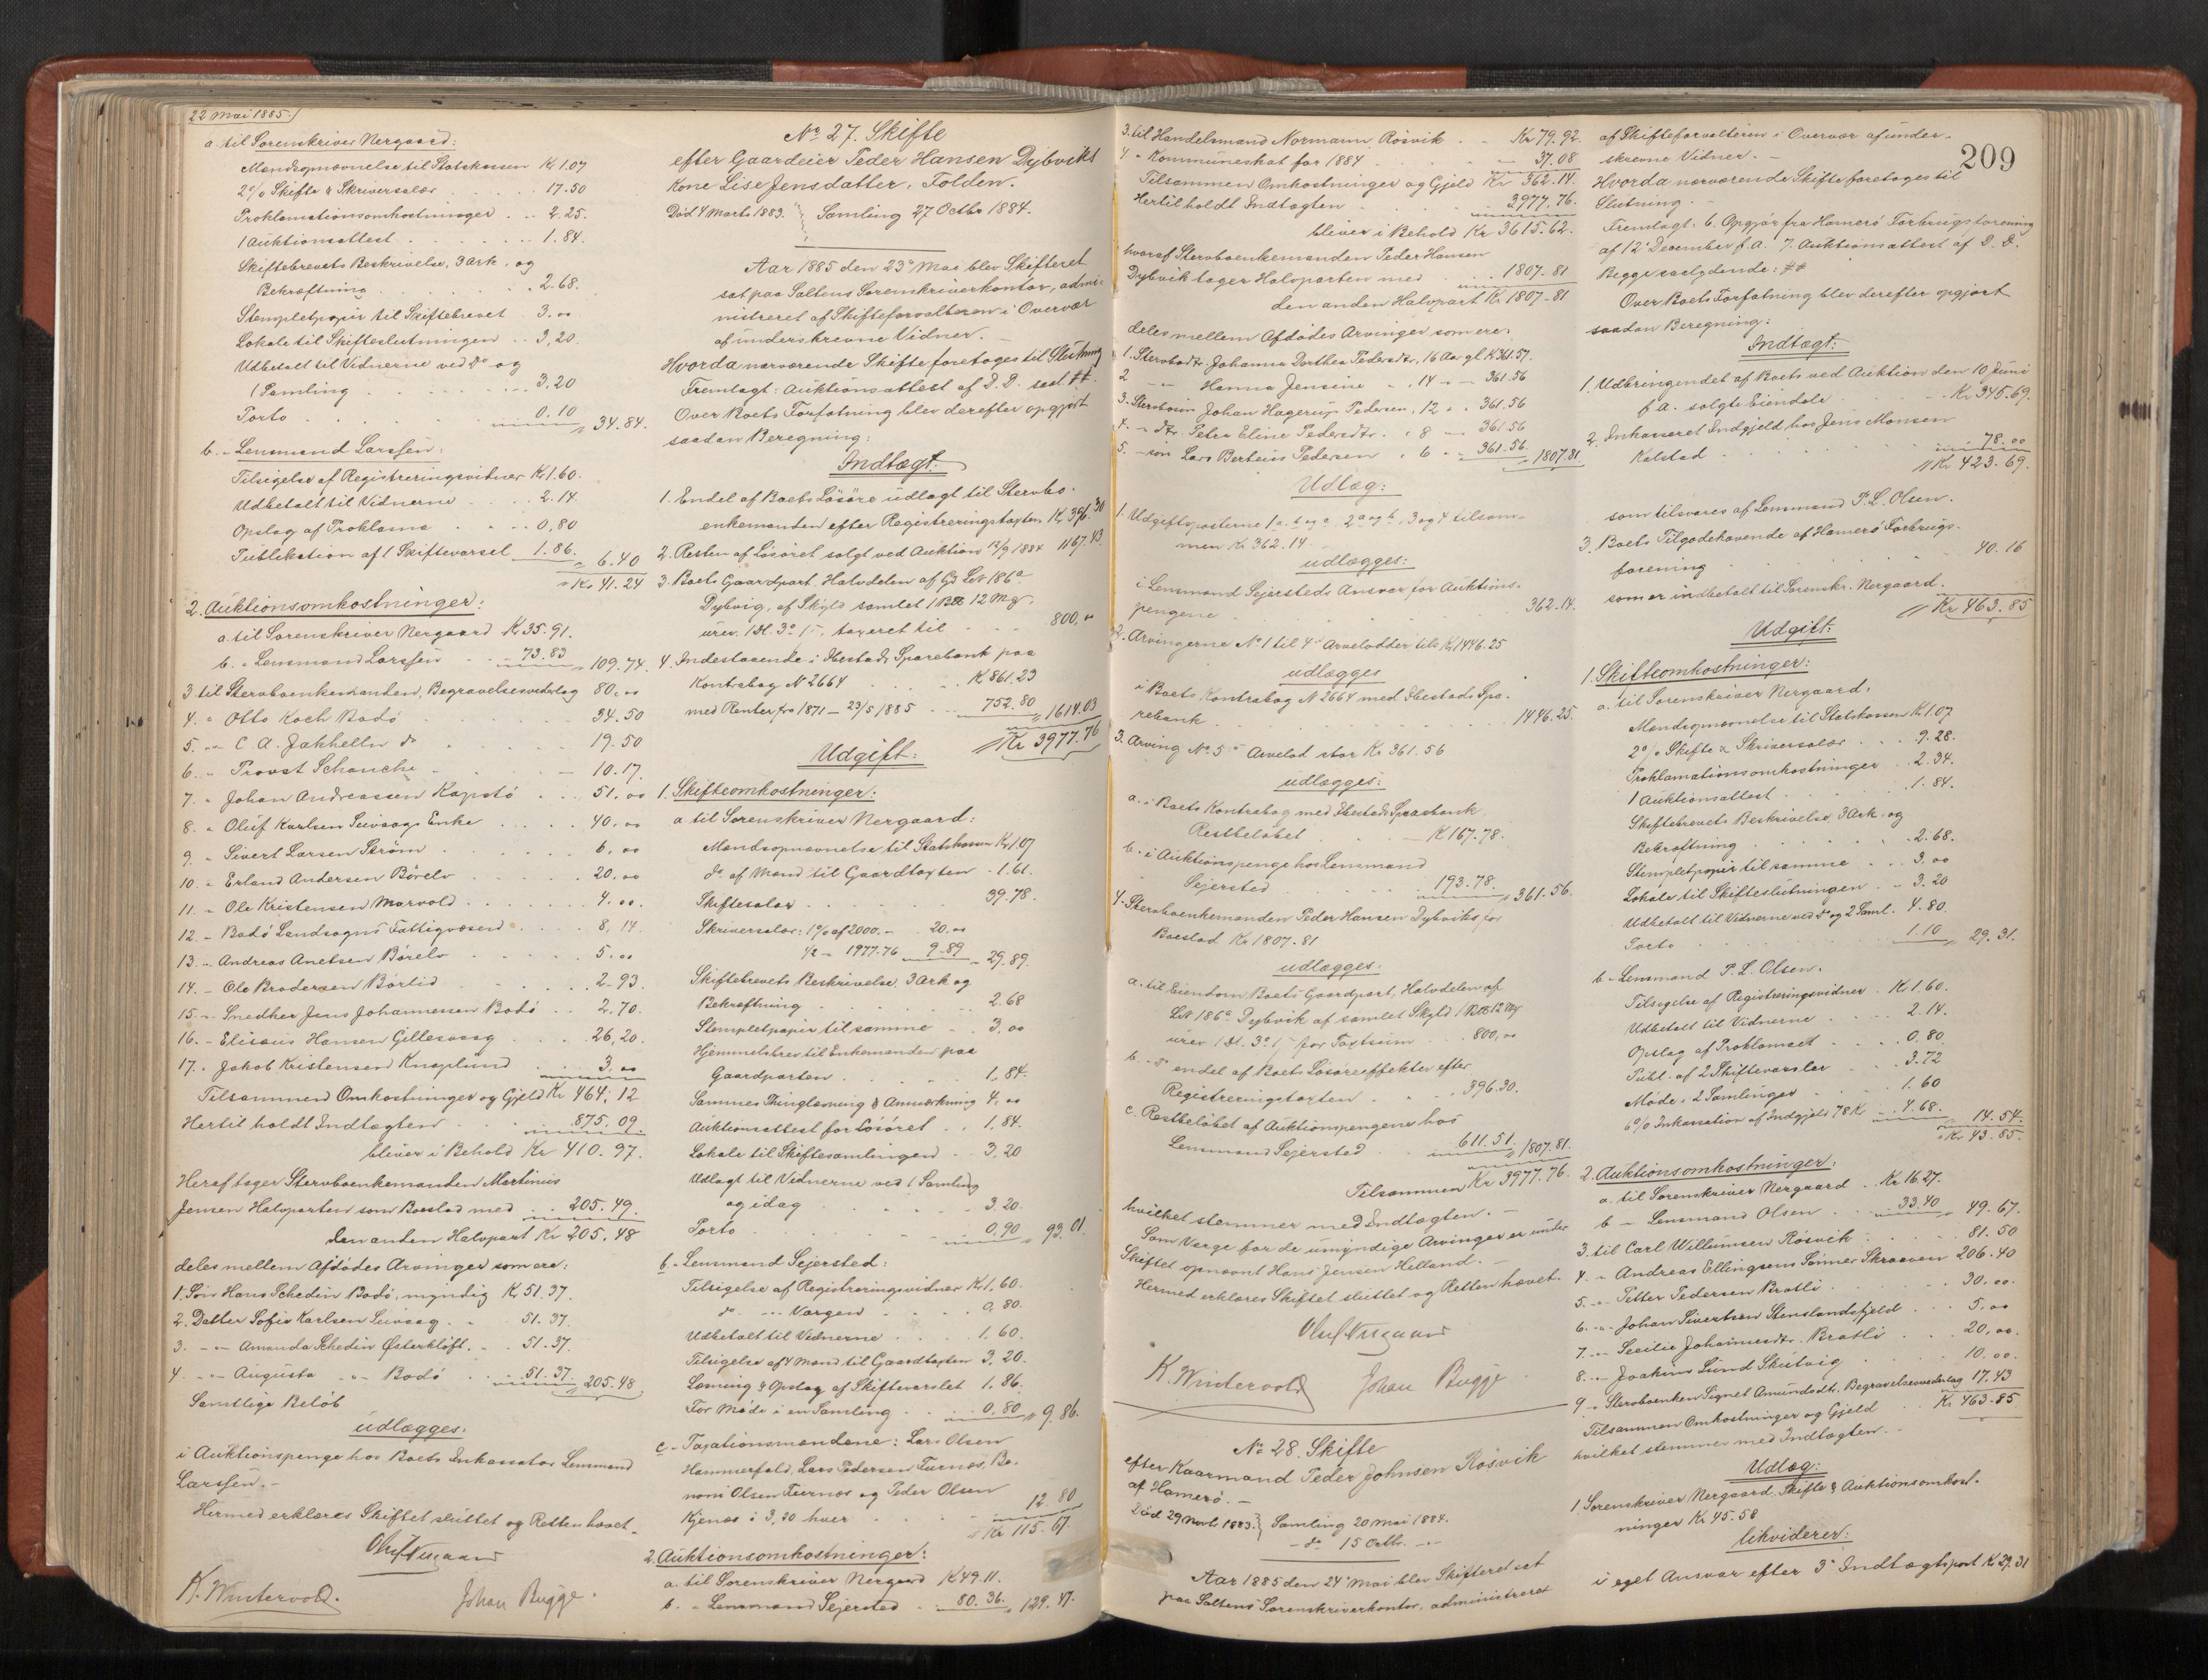 22 Mai 1885.
a. til Sorenskriver Nergaard:
Mandsopnævnelse til Statskassen Kr 1.07
2% Skifte & Skriversalær 17.50
Proklamationsomkostninger 2.25.
1 Auktionsattest 1.84.
Skiftebrevets Beskrivelse, 3 Ark, og
Bekræftning 2.68.
Stempletpapir til Skiftebrevet 3.00
Lokale til Skifteslutningen 3.20.
Udbetalt til Vidnerne ved do og
1 Samling 3.20
Porto 0.10 " 34.84.
b. - Lensmand Larssen:
Tilsigelse af Registreringsvidner Kr 1.60.
Udbetalt til Vidnerne 2.14.
Opslag af Proklama 0,80
Publikation af 1 Skiftevarsel 1.86. " 6.40
" Kr 41.24
2. Auktionsomkostninger:
a. til Sorenskriver Nergaard Kr 35.91.
b. " Lensmand Larssen 73.83 " 109.74.
3 til Stervboenkemanden, Begravelsesvederlag 80.00
4. " Otto Koch Bodö 34.50
5. " C. A. Jakhelln do 19.50
6. " Provst Schanche 10.17.
7. " Johan Andreassen Kapstö 51.00
8. " Oluf Karlsen Seivaags Enke 40.00
9. " Sivert Larsen Ström 6.00
10. " Erland Andersen Börelv 20.00
11. " Ole Kristensen Marvold 4.00.
12. - Bodö Landsogns Fattigvæsen 8,14.
13. " Andreas Anetsen Börelv 5.00
14. - Ole Brodersen Börlid 2.93
15. " Snedker Jens Johannesen Bodö 2,70.
16. - Elisæus Hansen Gillesvaag 26,20.
17. " Jakob Kristensen Knaplund 3.00
Tilsammen Omkostninger og Gjeld Kr 464.12
Hertil holdt Indtægten 875.09.
bliver i Behold Kr 410.97.
Heraf tager Stervboenkemanden Martinus
Jensen Halvparten som Boeslod med 205.49.
den anden Halvpart Kr 205.48
deles mellem Afdödes Arvinger som ere:
1. Sön Hans Schedin Bodö, myndig Kr 51.37.
2. Datter Sofie Karlsen Seivaag 51.37.
3. - " - Amanda Schedin Østerklöft. 51.37.
4. - " - Augusta - " - Bodö 51.37. " 205.48.
Samtlige Belöb
udlægges:
i Auktionspenge hos Boets Inkassator Lensmand
Larssen. -
Hermed erklæres Skiftet sluttet og Retten hævet. -
Oluf Nergaard
K. Wintervold. Johan Bugge.
No 27. Skifte
efter Gaardeier Peder Hansen Dybviks
Kone Lise Jensdatter, Folden.
Död 4 Marts 1883. Samling 27 Octbr 1884.
Aar 1885 den 23de Mai blev Skifteret
sat paa Saltens Sorenskriverkontor, admi-
nistreret af Skifteforvalteren i Overvær
af underskrevne Vidner. -
Hvorda nærværende Skifte foretoges til Slutning
Fremlagt: Auktionsattest af D. D. saal. ##.
Over Boets Forfatning blev derefter opgjort
saadan Beregning:
Indtægt:
1. Endel af Boets Lösöre udlagt til Stervbo-
enkemanden efter Registreringstaxten Kr 396.30
2. Resten af Lösöret solgt ved Auktion 12/9 1884 1167.43.
3. Boets Gaardpart, Halvdelen af G3 Lnr 186a
Dybvig, af Skyld samlet 1 Bpd 12 Mrg,
urev. 1 Dl. 3 o 1 s, taxeret til 800,00
4. Indestaaende i Ibestads Sparebank paa
Kontrabog N 2664 Kr 861.23
med Renter fra 1871 - 23/5 1885 752.80 " 1614.03
Kr 3977.76
Udgift:
1. Skifteomkostninger:
a til Sorenskriver Nergaard:
Mandsopnævnelse til Statskassen Kr 1.07
do af Mænd til Gaardtaxten 1.61.
Skiftesalær 39.78.
Skriversalær: 1% af 2000. - 20.00
1/2 - 1977.76 9.89 " 29.89.
Skiftebrevets Beskrivelse, 3 Ark og
Bekræftning 2.68
Stempletpapir til samme 3.00
Hjemmelsbrev til Enkemanden paa
Gaardparten 1.84.
Sammes Thinglæsning & Anmærkning 4.00
Auktionsattest for Lösöret 1.84.
Lokale til Skiftesamlingen 3.20
Udlagt til Vidnerne ved 1 Samling
og idag 3.20.
Porto 0.90 " 93.01.
b. - Lensmand Sejersted:
Tilsigelse af Registreringsvidner Kr 1.60.
do - " - Værgen 0,80.
Udbetalt til Vidnerne 1.60.
Tilsigelse af 4 Mænd til Gaardtaxten 3.20.
Læsning & Opslag af Skiftevarslet 1.86.
For Möde i en Samling 0.80 " 9.86.
c. - Taxationsmændene: Lars Olsen
Hammerfald, Lars Pedersen Furnæs, Be-
noni Olsen Furnæs og Peder Olsen
Kjenæs i 3,20 hver 12.80
" Kr 115.67.
2. Auktionsomkostninger:
a. til Sorenskriver Nergaard Kr 49.11.
b. - Lensmand Sejersted 80.36. " 129.47.
209
3. til Handelsmand Normann Rösvik Kr 79.92
4 - Kommuneskat for 1884 37.08
Tilsammen Omkostninger og Gjeld Kr 362.14.
Hertil holdt Indtægten 3977.76.
bliver i Behold Kr 3615.62.
hvoraf Stervboenkemanden Peder Hansen
Dybvik tager Halvparten med 1807.81
den anden Halvpart Kr 1807.81
deles mellem Afdödes Arvinger som ere:
1. Stervbodtr Johanna Dorthea Pedersdtr, 16 Aar gl. Kr 361.57.
2 - " - Hanna Jensine " 14 " - 361.56
3. Stervbosön Johan Hagerup Pedersen, 12 " 361.56
4. - " dtr. Petra Eline Pedersdtr. " 8 - 361.56
5. - " sön Lars Berteus Pedersen " 6 - 361.56. " 1807.81
Udlæg:
1. Udgiftsposterne 1 a. b og c, 2 a og b, 3 og 4 tilsam-
men Kr 362.14
udlægges:
i Lensmand Sejersteds Ansvar for Auktions-
pengene 362.14.
2. Arvingerne No 1 til 4s Arvelodder tils. Kr 1446.25
udlægges
i Boets Kontrabog N 2664 med Ibestads Spa-
rebank 1446.25.
3. Arving No 5s Arvelod stor Kr 361.56
udlægges:
a. i Boets Kontrabog med Ibestads Sparebank
Restbelöbet Kr 167.78.
b. i Auktionspenge hos Lensmand
Sejersted 193.78. " 361.56.
4. Stervboenkemanden Peder Hansen Dybviks for
Boeslod Kr 1807.81
udlægges:
a. til Eiendom Boets Gaardpart, Halvdelen af
Lnr 186a Dybvik af samlet Skyld 1 Bpd 12 Mrg
urev. 1 Dl. 3 o 1 s for Taxtsum 800,00
b. - do endel af Boets Lösöreeffekter efter
Registreringstaxten 396.30.
c. Restbelöbet af Auktionspengene hos
Lensmand Sejersted 611.51. " 1807.81.
Tilsammen Kr 3977.76.
hvilket stemmer med Indtægten. -
Som Værge for de umyndige Arvinger er under
Skiftet opnævnt Hans Jensen Helland. -
Hermed erklæres Skiftet sluttet og Retten hævet.
Oluf Nergaard
K. Wintervold Johan Bugge
No 28. Skifte
efter Kaarmand Peder Johnsen Rösvik
af Hamerö. -
Död 29 Novbr 1883. Samling 20 Mai 1884.
- do 15 Octb. - " -
Aar 1885 den 24de Mai blev Skifteret sat
paa Saltens Sorenskriverkontor, administreret
af Skifteforvalteren i Overvær af under-
skrevne Vidner. -
Hvorda nærværende Skifte foretoges til
Slutning. -
Fremlagt: 6. Opgjör fra Hamerö Forbrugsforening
af 12te December f. A. 7. Auktionsattest af D. D.
Begge saalydende: ##
Over Boets Forfatning blev derefter opgjort
saadan Beregning:
Indtægt:
1. Udbringendet af Boets ved Auktion den 10 Juni
f A. solgte Eiendele Kr 345.69.
2. Inkasseret Indgjeld hos Jens Monsen
Kalstad 78.00
" Kr 423.69.
som tilsvares af Lensmand P. L. Olsen.
3. Boets Tilgodehavende af Hamerö Forbrugs-
forening 40.16
som er indbetalt til Sorenskr. Nergaard.
Kr 463.85
Udgift:
1. Skifteomkostninger:
a. til Sorenskriver Nergaard:
Mandsopnævnelse til Statskassen Kr 1.07
2% Skifte & Skriversalær 9.28.
Proklamationsomkostninger 2.34.
1 Auktionsattest 1.84.
Skiftebrevets Beskrivelse 3 Ark og
Bekræftning 2.68.
Stempletpapir til samme 3.00
Lokale til Skifteslutningen 3.20
Udbetalt til Vidnerne ved do og 2 Saml. 4.80.
Porto 1.10 " 29.31.
b - Lensmand P. L. Olsen.
Tilsigelse af Registreringsvidner Kr 1.60.
Udbetalt til Vidnerne 2.14.
Opslag af Proklamaet 0.80
Publ. af 2 Skiftevarsler 3.72
Möde i 2 Samlinger 1.60
6% Inkassation af Indgjeld 78 Kr 4.68. " 14.54.
" Kr 43.85.
2. Auktionsomkostninger:
a. til Sorenskriver Nergaard Kr 16.27.
b - Lensmand Olsen 33.40 " 49.67.
3. til Carl Willumsen Rösvik 81.50
4. " Andreas Ellingsens Sönner Skraaven 206.40
5. - " Petter Pedersen Bratli 30.00.
6. - " Johan Sivertsen Stenslandsfjeld 5.00
7. - " Secilie Johannesdtr. Bratli 20,00.
8. - " Joakim Lund Skutvig 10.00.
9 - Stervboenken Signet Amundsdt. Begravelsesvederlag 17.43
Tilsammen Omkostninger og Gjeld Kr 463.85
hvilket stemmer med Indtægten. -
Udlæg:
1. Sorenskriver Nergaard Skifte & Auktionsomkost-
ninger Kr 45.58
likviderer:
i eget Ansvar efter 3de Indtægtspost Kr 29.31